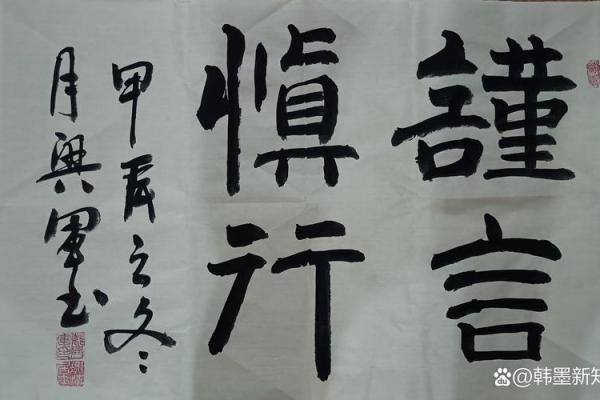 謹言
慎行
甲辰之冬
月興軍书
@韩墨新知